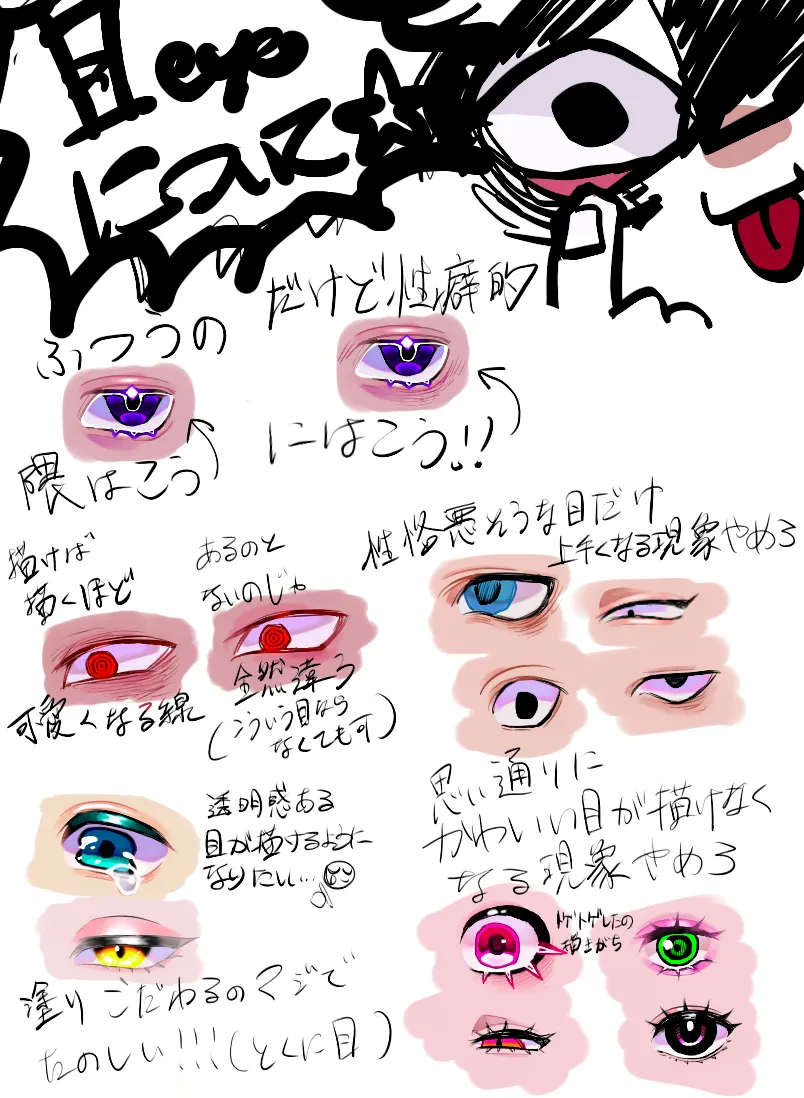 目eye
について
ふつうの
隈はこう
だけど性癖的
にはこう!!
描けば
描くほど
可愛くなる線
あるのと
ないのじゃ
全然違う
(こういう目なら
なくても可)
性格悪そうな目だけ
上手くなる現象やめろ
透明感ある
目が描けるように
なりたい…
塗りこだわるのマジで
たのしい!!!(とくに目)
思い通りに
かわいい目が描けなく
なる現象やめろ
トゲトゲしたの
描きがち